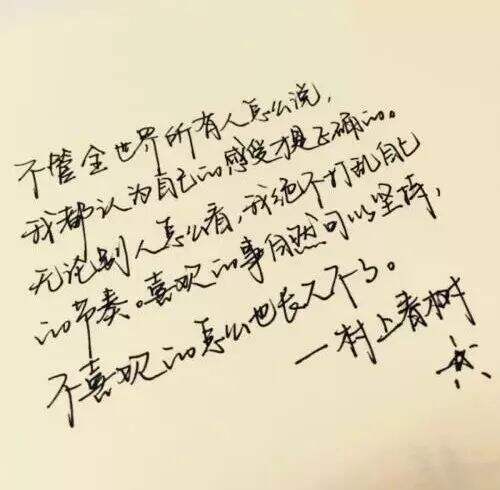 不管全世界所有人怎么说，
我都认为自己的感受才是正确的。
无论别人怎么看，我绝不打乱自己
的节奏。喜欢的事自然可以坚持，
不喜欢的怎么也长久不了。
—村上春树